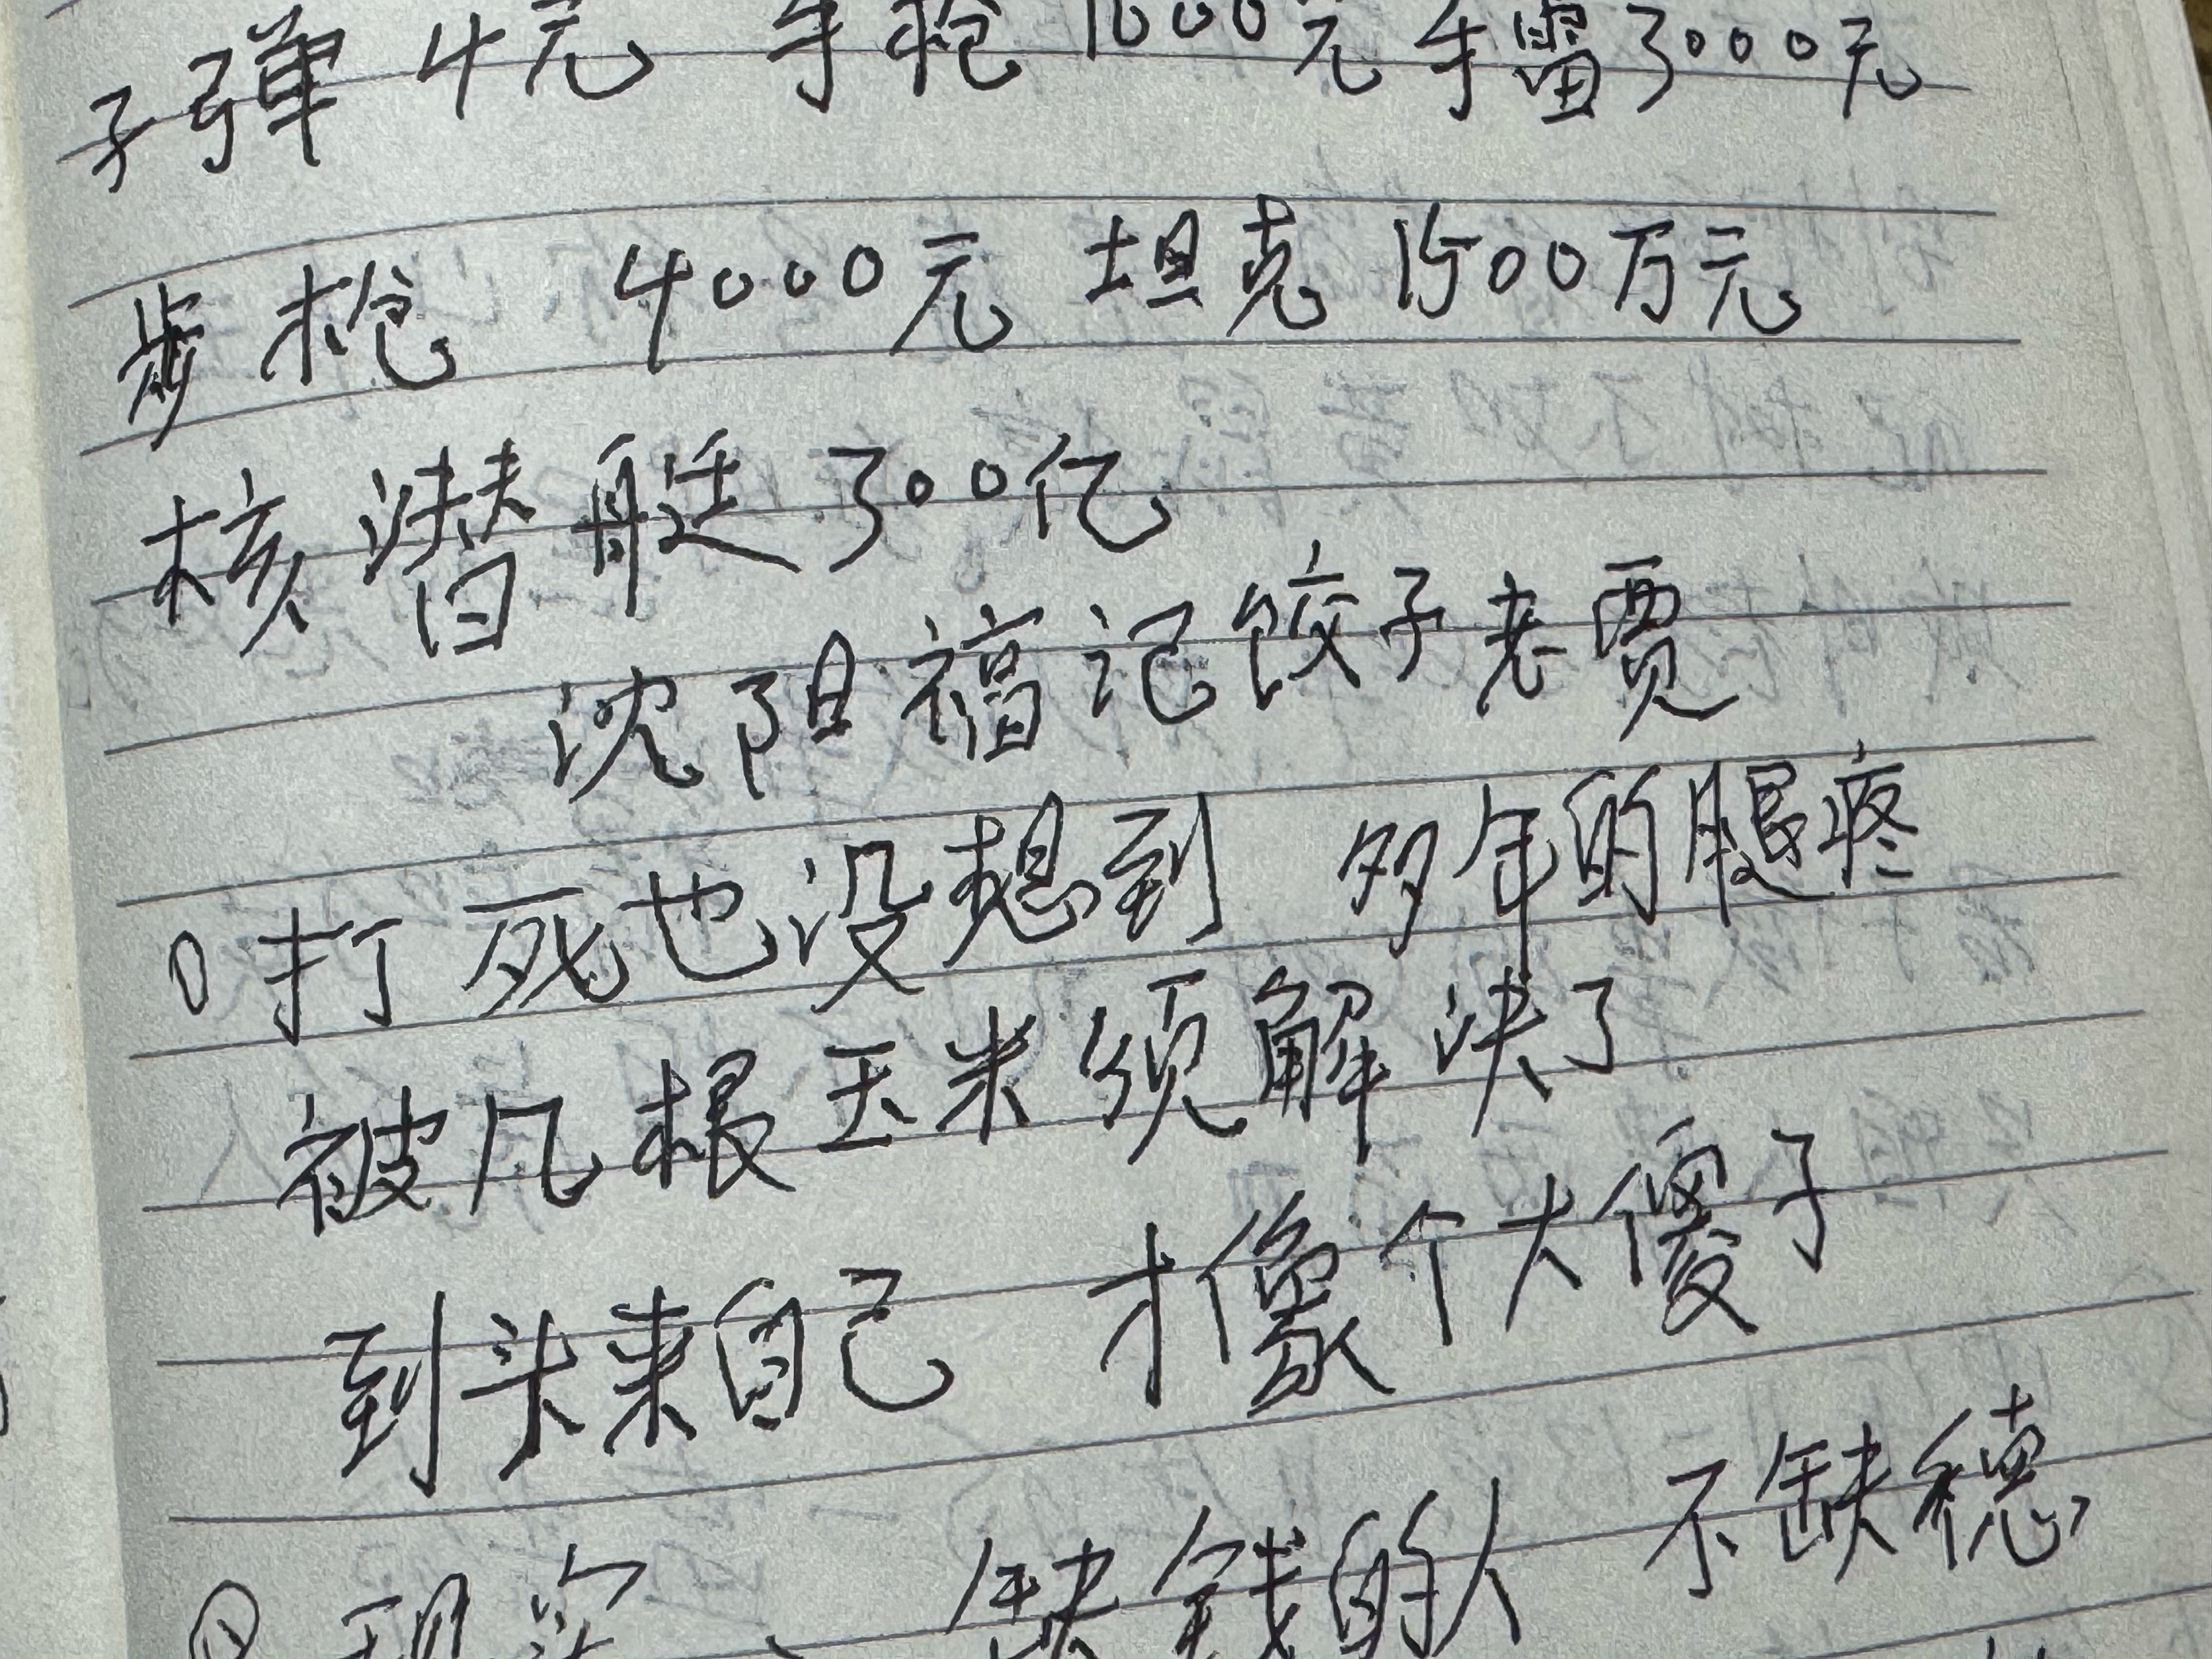 子弹 4元 手枪 1000元 手雷 3000元
步枪 4000元 坦克 1500万元
核潜艇 300亿
沈阳福记饺子老贾
0 打死也没想到 多年的腿疼
被几根玉米须解决了
到头来自己 才像个大傻子
现实 、 缺钱的人 不缺德,